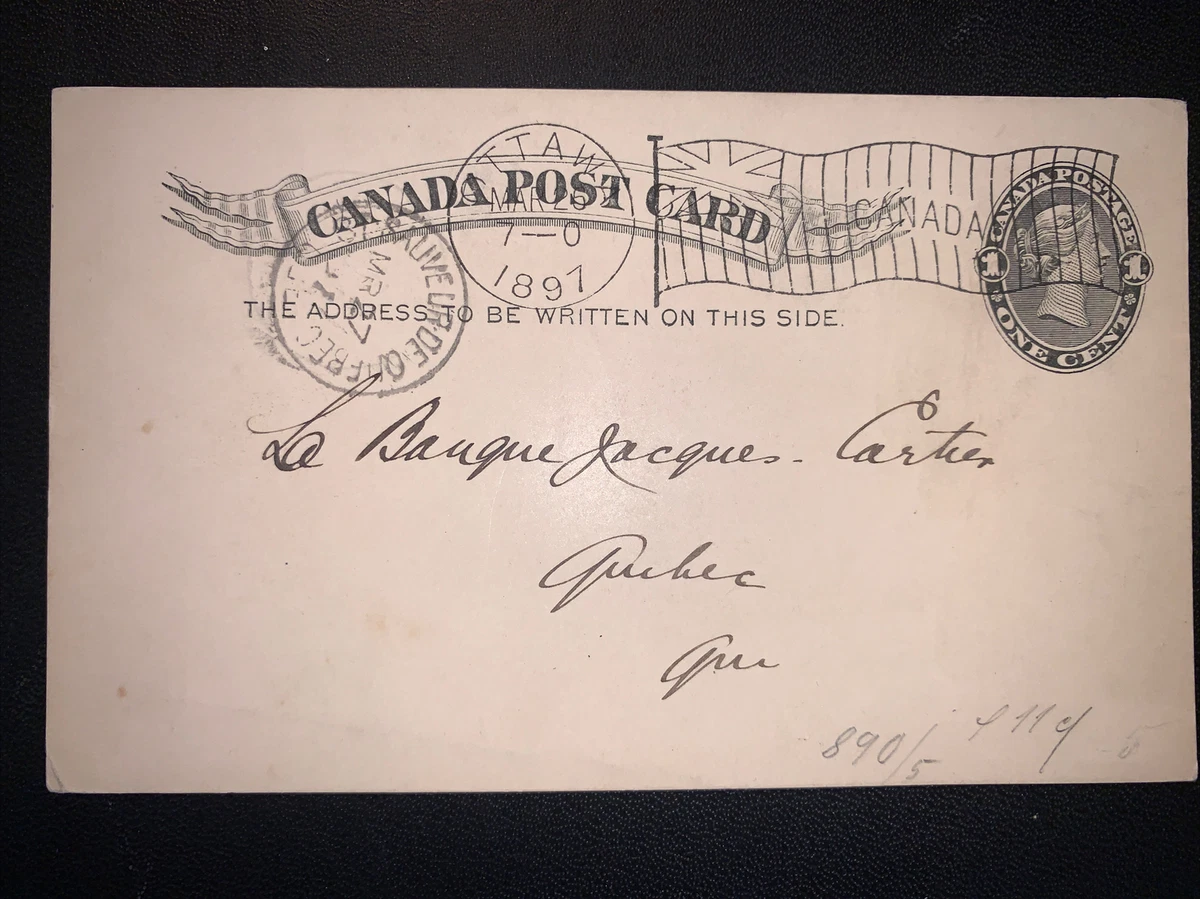 CANADA POST CARD
OTTAWA
MAR
7—0
1897
CANADA
CANADA POSTAGE
1 1
ONE CENT
ST SAUVEUR-DE-QUEBEC
MR
97
THE ADDRESS TO BE WRITTEN ON THIS SIDE.
La Banque Jacques-Cartier
Quebec
Que
890/5